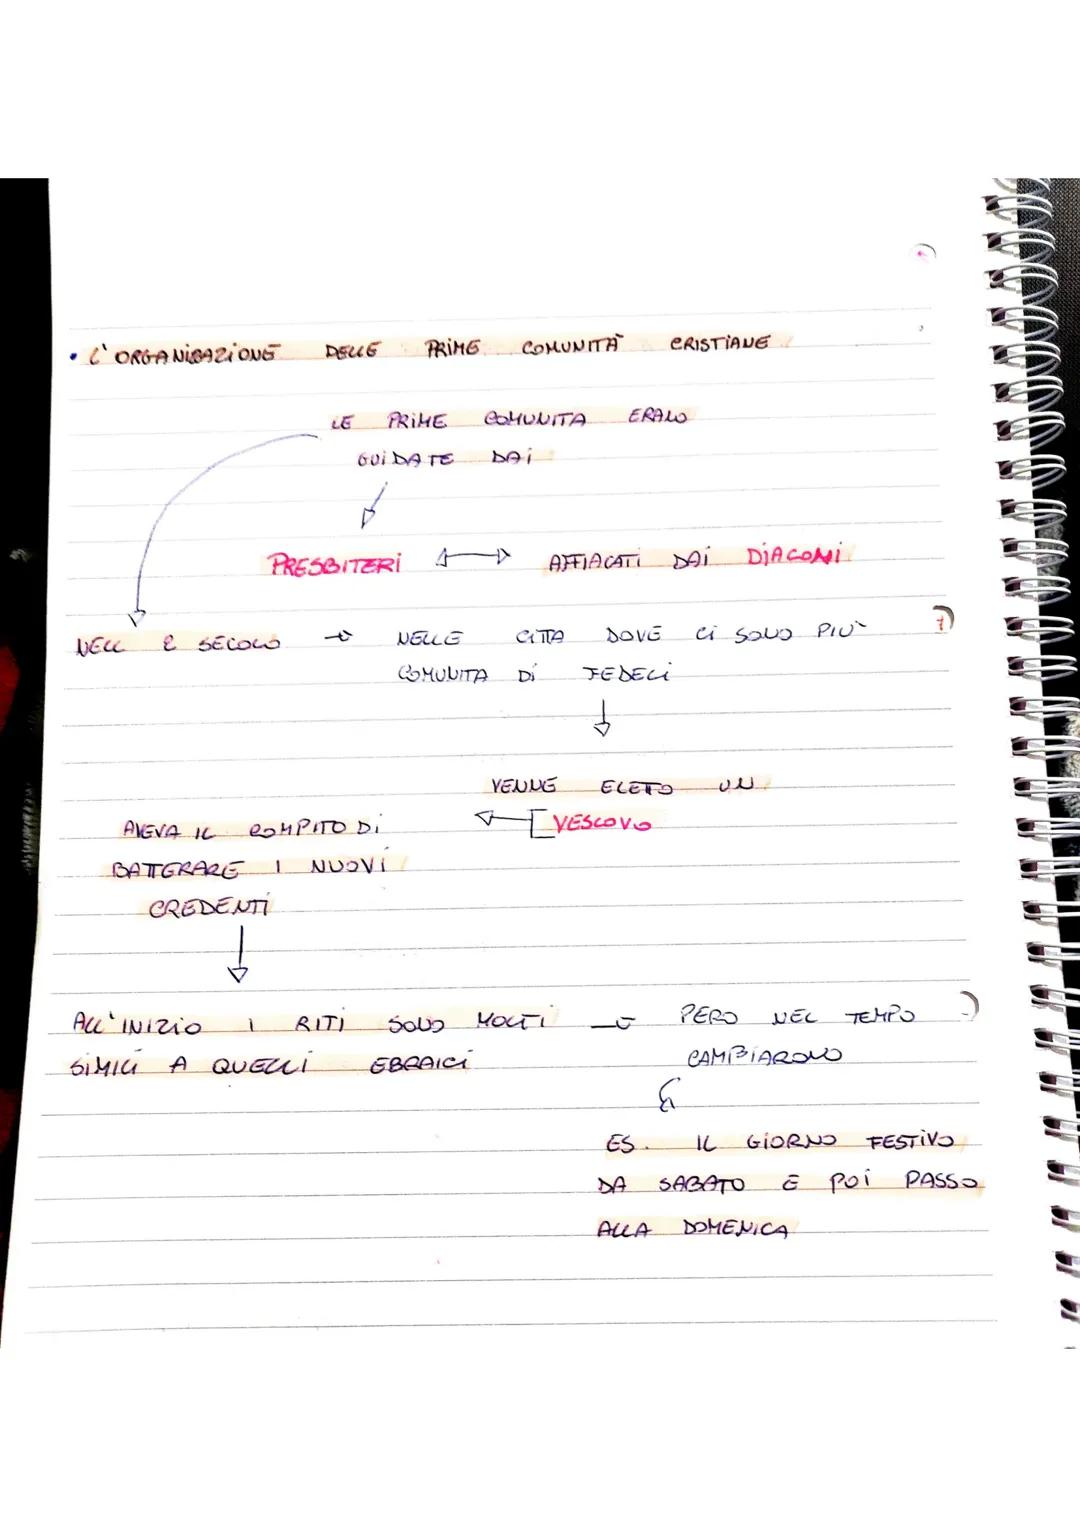 • L'ORGANIZAZIONE DELLE PRIME COMUNITÀ CRISTIANE
LE PRIME COMUNITA ERANO
GUIDATE DAI
PRESBITERI ↔ AFFIACATI DAI DIACONI
NELL 2 SECOLO → NELLE CITTA DOVE CI SONO PIU'
COMUNITA DI FEDELI
VENNE ELETO UN
VESCOVO
AVEVA IL COMPITO DI
BATTEZARE I NUOVI
CREDENTI
ALL'INIZIO I RITI SONO MOLTI → PERO NEL TEMPO
SIMILI A QUELLI EBRAICI CAMBIARONO
ES. IL GIORNO FESTIVO
DA SABATO E POI PASSO
ALLA DOMENICA